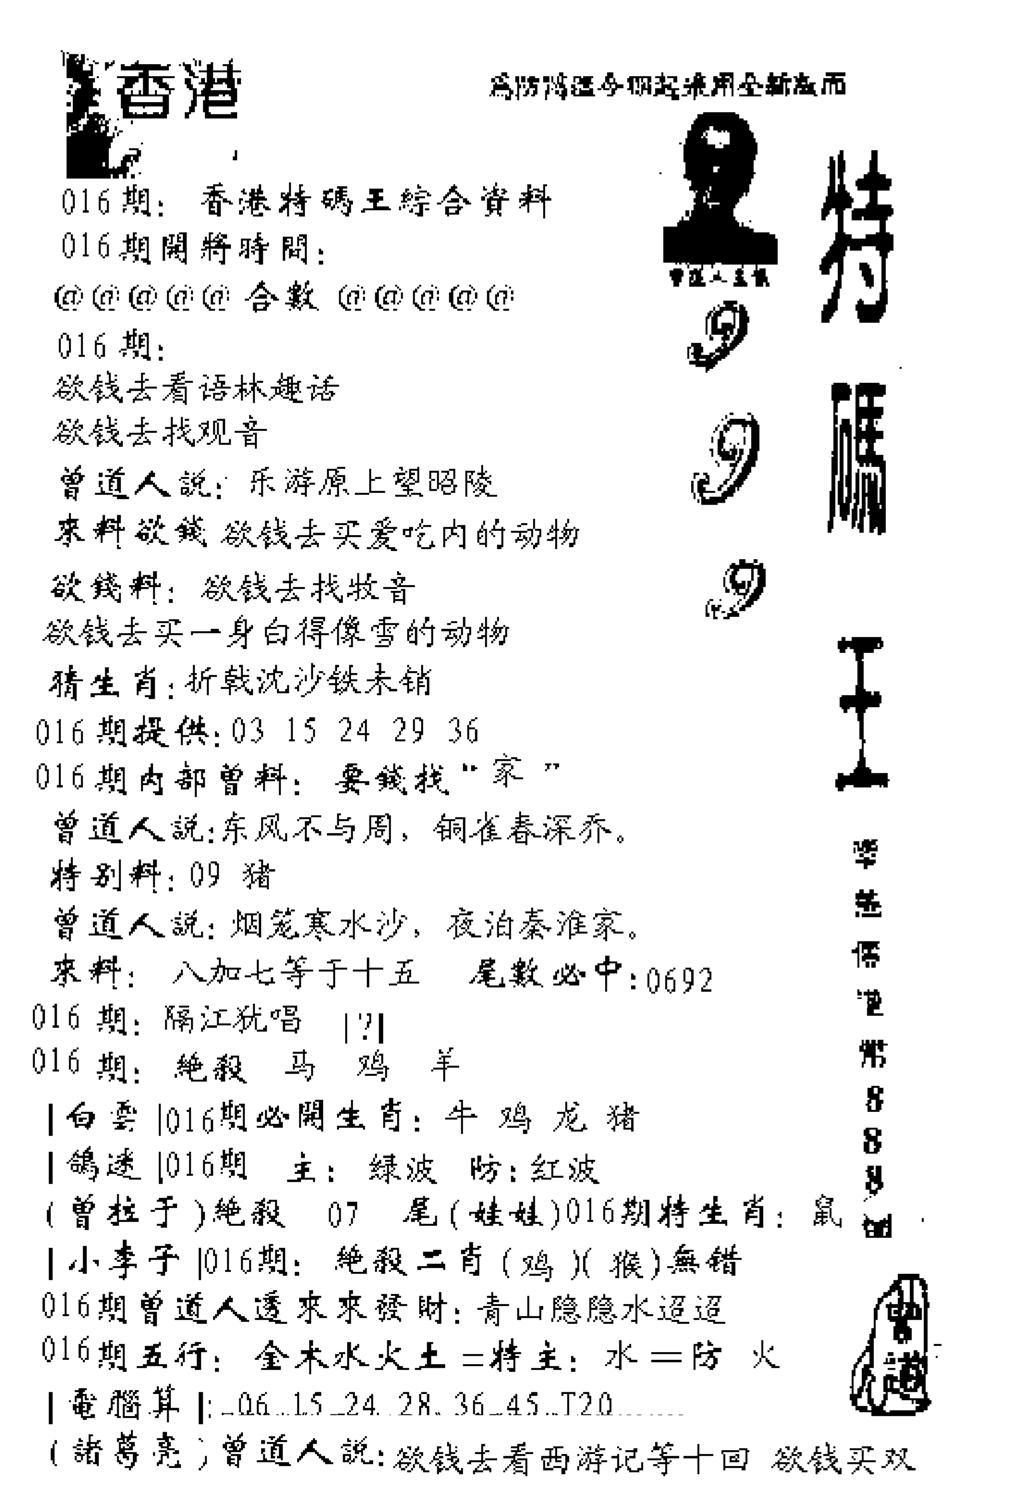 香港
為防濫今期起採用全新版面
016期: 香港特碼王綜合資料
016期開將時間:
@@@@@ 合數 @@@@@
016期:
欲钱去看语林趣话
欲钱去找观音
曾道人説: 乐游原上望昭陵
來料欲錢 欲钱去买爱吃内的动物
欲錢料: 欲钱去找牧音
欲钱去买一身白得像雪的动物
猜生肖:折戟沈沙铁未销
016期提供:03 15 24 29 36
016期内部曾料: 要錢找“家”
曾道人説:东风不与周，铜雀春深乔。
特别料:09 猪
曾道人説:烟笼寒水沙，夜泊秦淮家。
來料: 八加七等于十五 尾數必中:0692
016期: 隔江犹唱 |?|
016期: 絶殺 马 鸡 羊
|白雲|016期必開生肖: 牛 鸡 龙 猪
|鴿迷|016期 主: 绿波 防:红波
(曾拉于)絶殺 07 尾(娃娃)016期特生肖: 鼠
|小李子|016期: 絶殺二肖(鸡)(猴)無错
016期曾道人透來來發財:青山隐隐水迢迢
016期五行: 金木水火土=特主: 水=防 火
|電腦算|:..06..15..24..28..36..45..T20........
(諸葛亮)曾道人説:欲钱去看西游记等十回 欲钱买双
特碼王
9
9
9
888
曾道